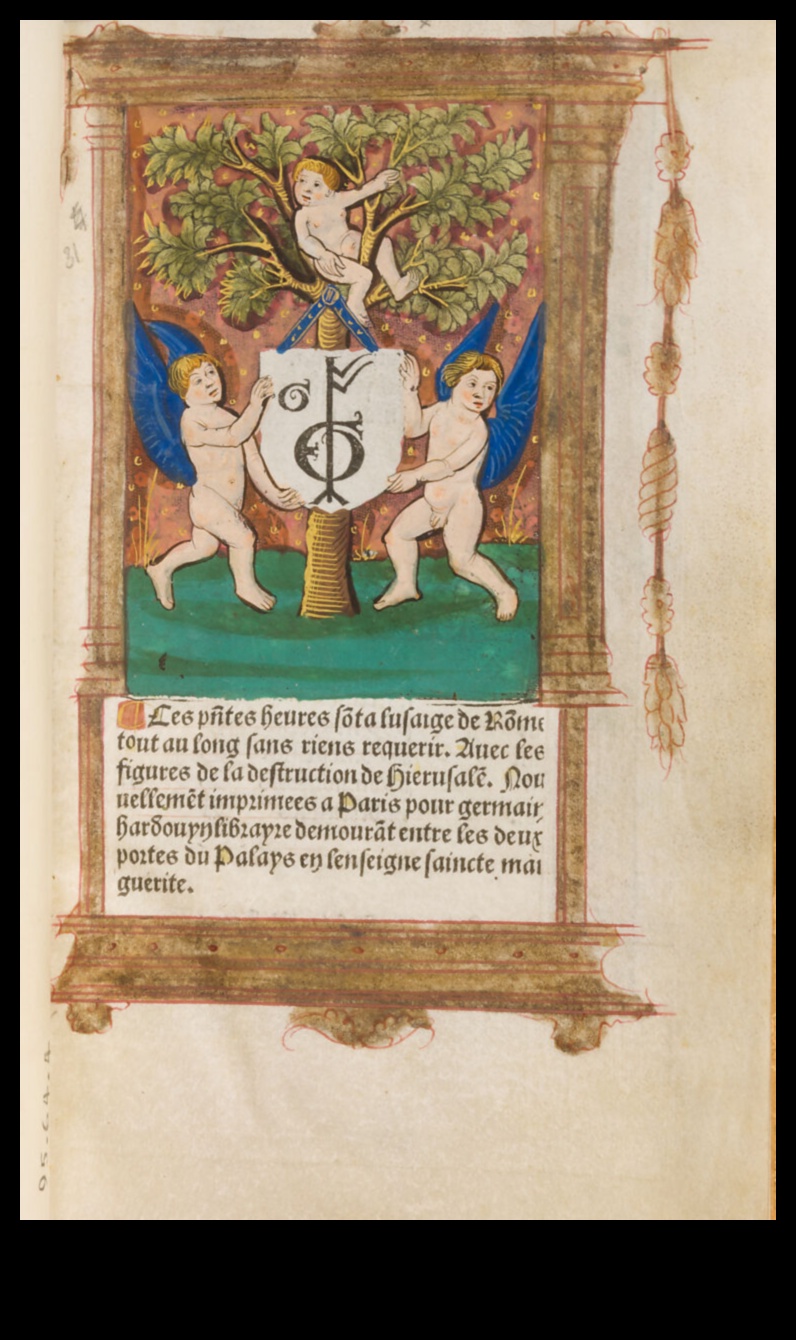 31
Ces pñtes heures sõt a lusaige de Rõme
tout au long sans riens requerir. Auec les
figures de la destruction de Hierusalẽ. Nou
uellemẽt imprimees a Paris pour germain
hardouyn librayre demourãt entre les deux
portes du Palays en lenseigne saincte mar
guerite.